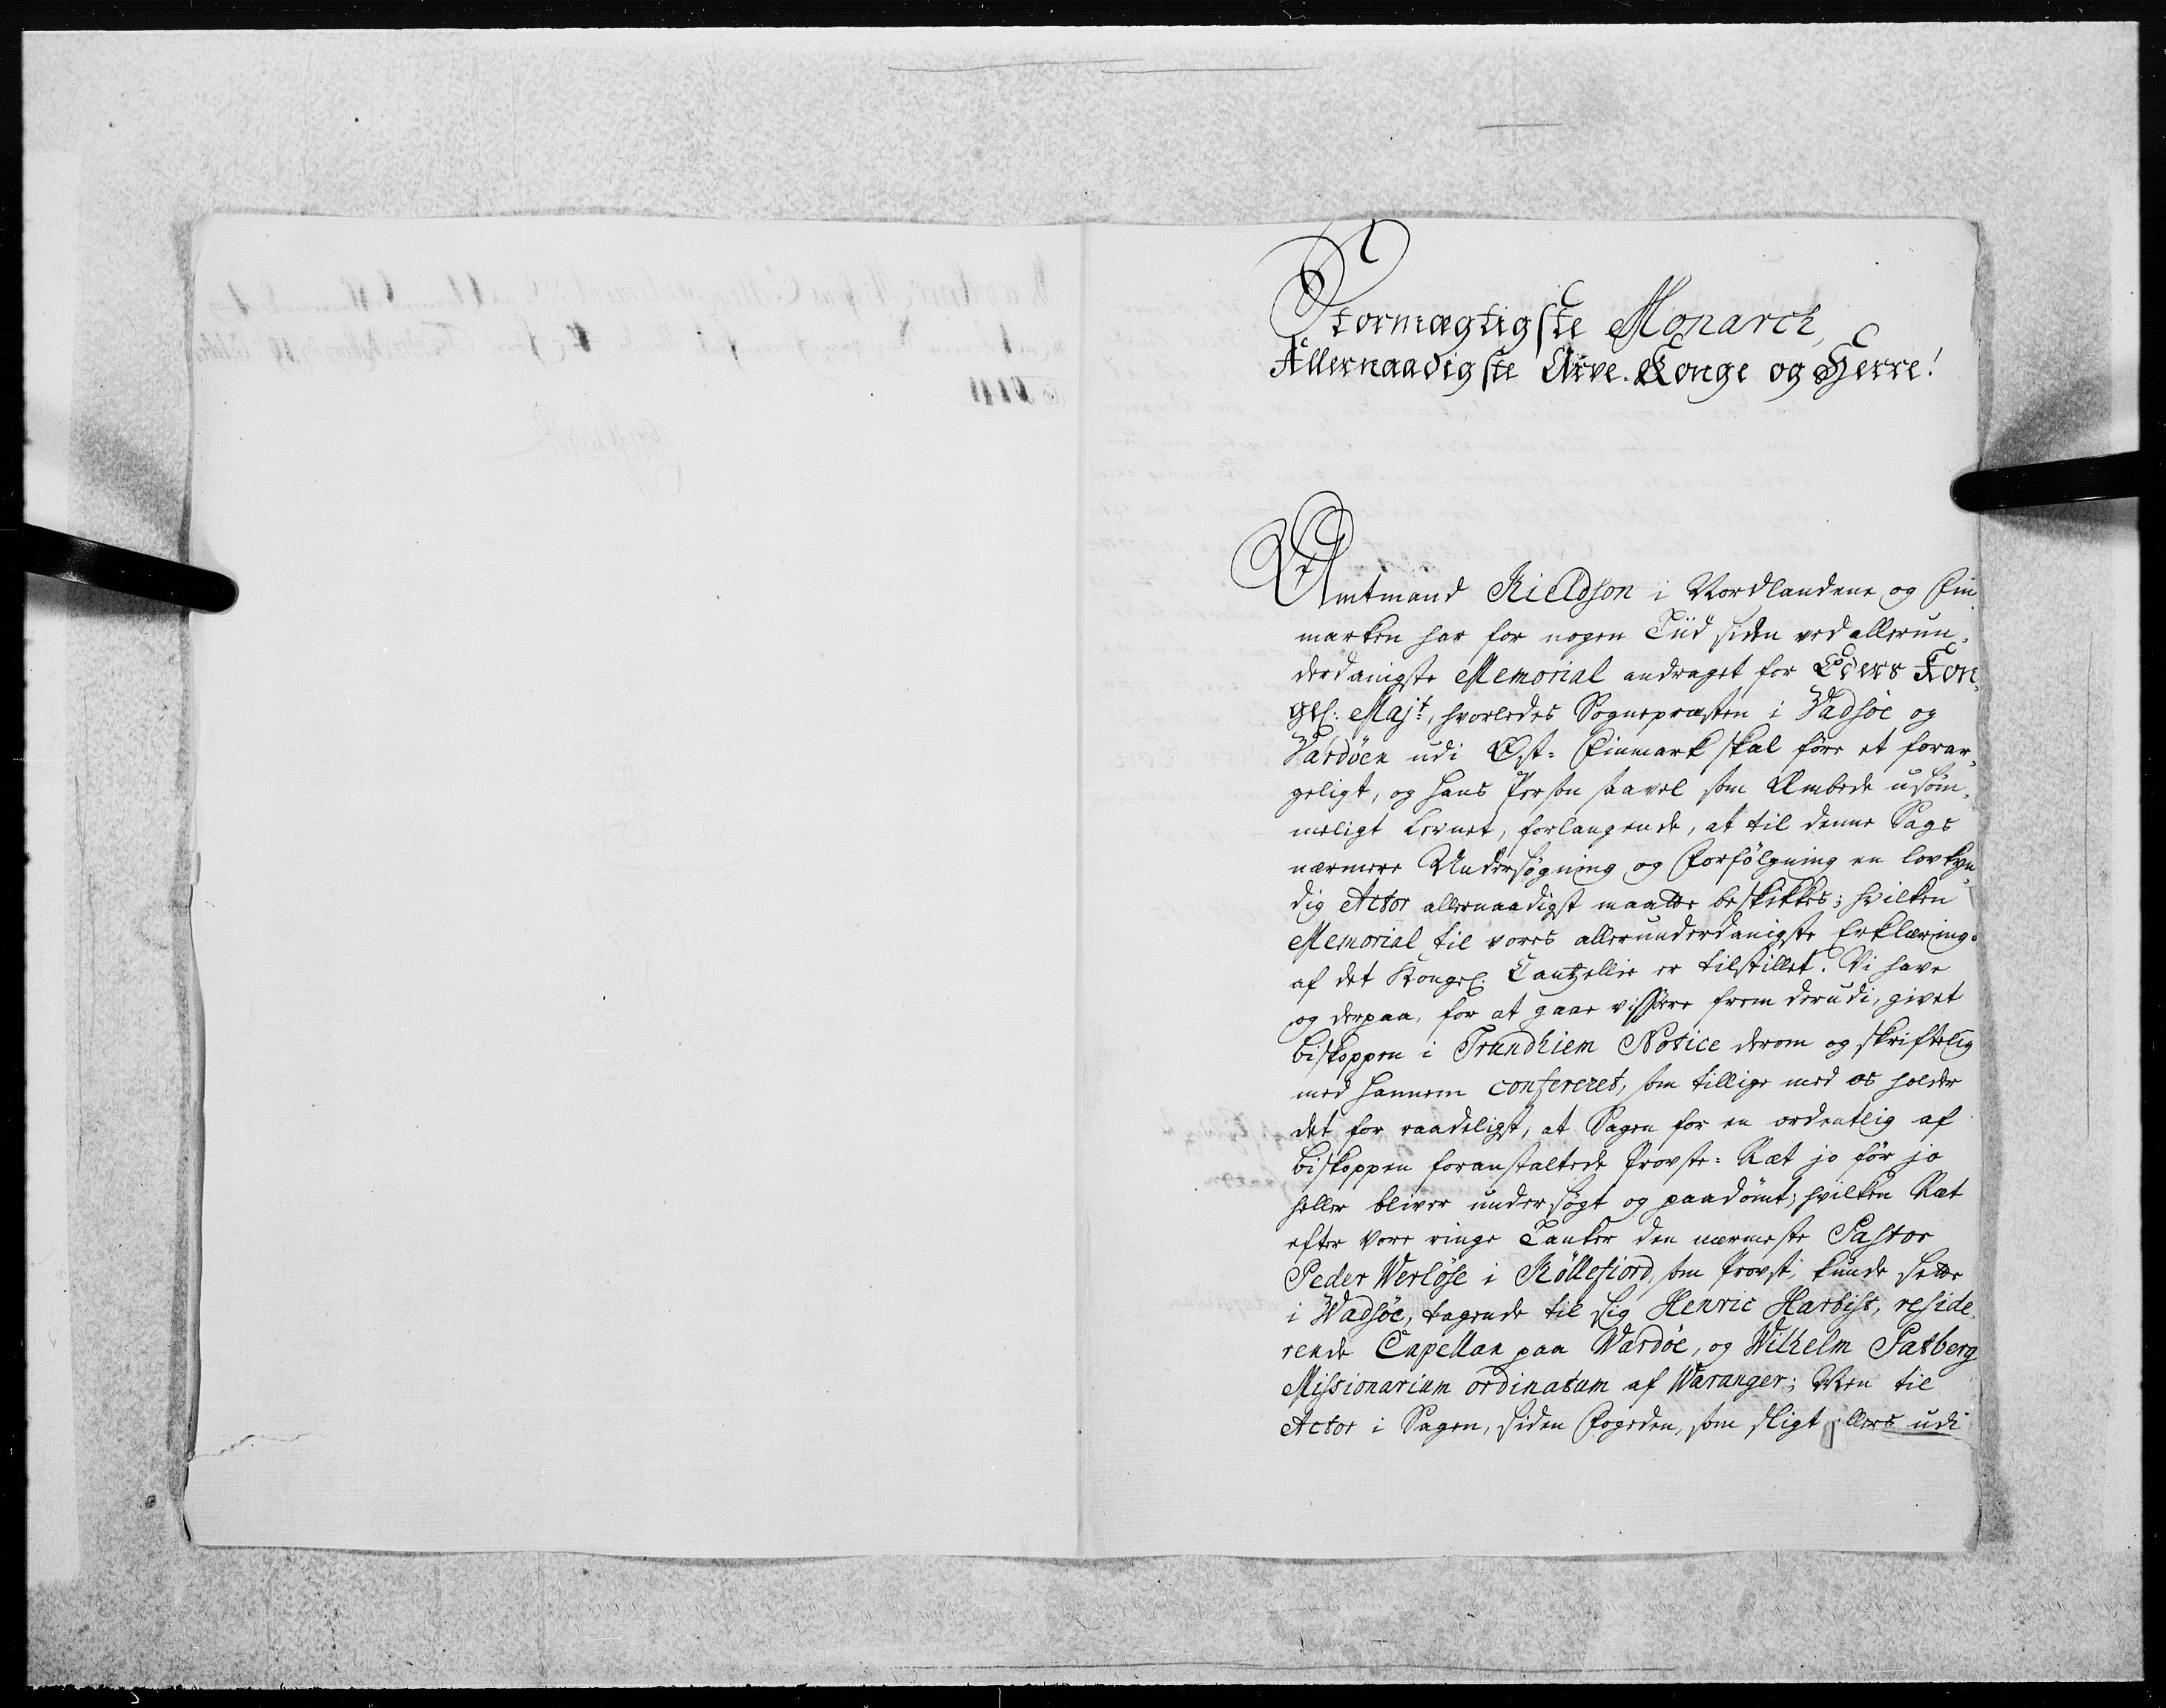 Stormægtigste Monarch,
Allernaadigste Arve-Konge og Herre!
Amtmand Kieldson i Nordlandene og Fin-
marken har for nogen Tiid siden ved allerun-
derdanigste Memorial andraget for Eders Kon-
gel: Majt:, hvorledes Sognepræsten i Vadsöe og
Vardöen udi Øst-Finmark skal före et forar-
geligt, og hans Person saavel som Embede usöm-
meligt Levnet, forlangende, at til denne Sags
nærmere Undersögning og Forfölgning en lovkyn-
dig Actor allernaadigst maatte beskikkes; hvilken
Memorial til vores allerunderdanigste Erklæring
af det Kongel: Cantzellie er tilstillet. Vi have
og derpaa, for at gaae vissere frem derudi, givet
Biskoppen i Trundhiem Notice derom og skriftelig
med hannem confereret, som tillige med os holder
det for raadeligst, at Sagen for en ordentlig af
Biskoppen foranstaltede Provste-Ræt jo för jo
heller bliver undersögt og paadömt; hvilken Ræt
efter vore ringe Tanker den nærmeste Pastor
Peder Werlöse i Köllefiord, som Provst, kunde sette
i Wadsöe, tagende til sig Henric Harbist, reside-
rende Capellan paa Wardöe, og Wilhelm Patberg
Missionarium ordinatum af Waranger; Men til
Actor i Sagen, siden Fogeden, som sligt ellers udi